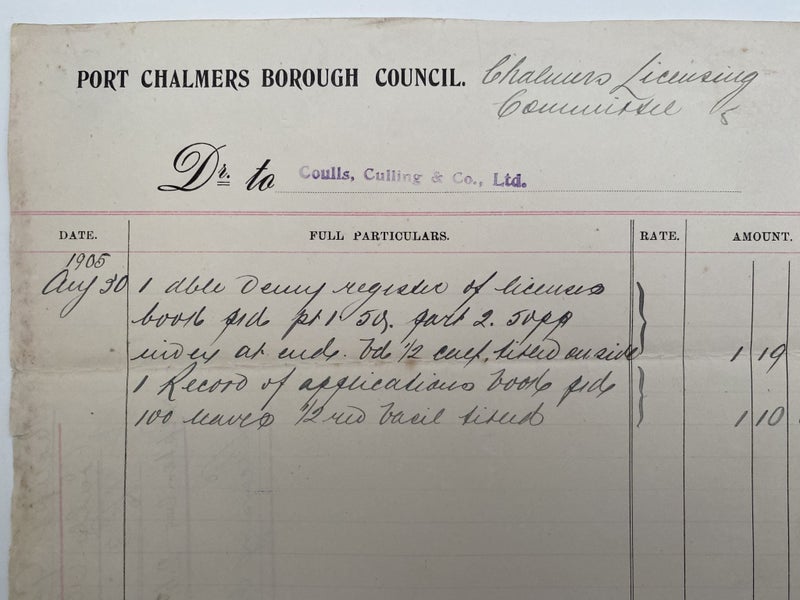 PORT CHALMERS BOROUGH COUNCIL. Chalmers Licensing
Committee
Dr. to Coulls, Culling & Co., Ltd.
DATE. FULL PARTICULARS. RATE. AMOUNT.
1905
Aug 30 1 dble Demy register of licenses
book ptd pt 1 50, part 2. 50pp
index at end. Bd 1/2 calf, titled on side 1 19
1 Record of applications book ptd
100 leaves 1/2 red basil titled 1 10